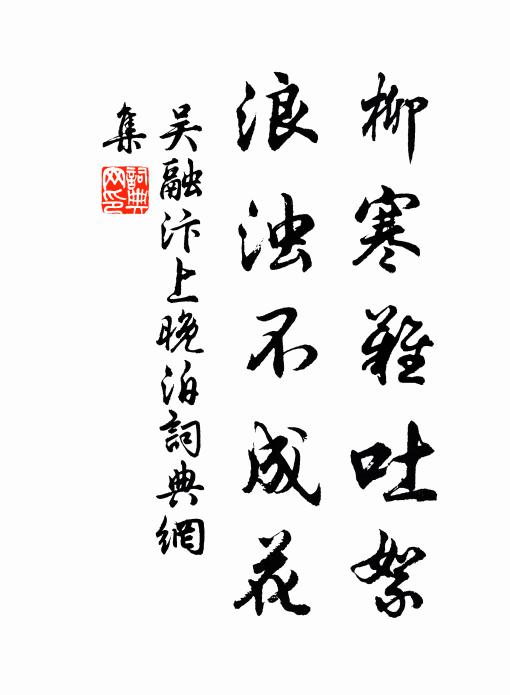 柳寒難吐絮
浪浊不成花
吴融汴上晚泊詞典網
集
詞典
网印